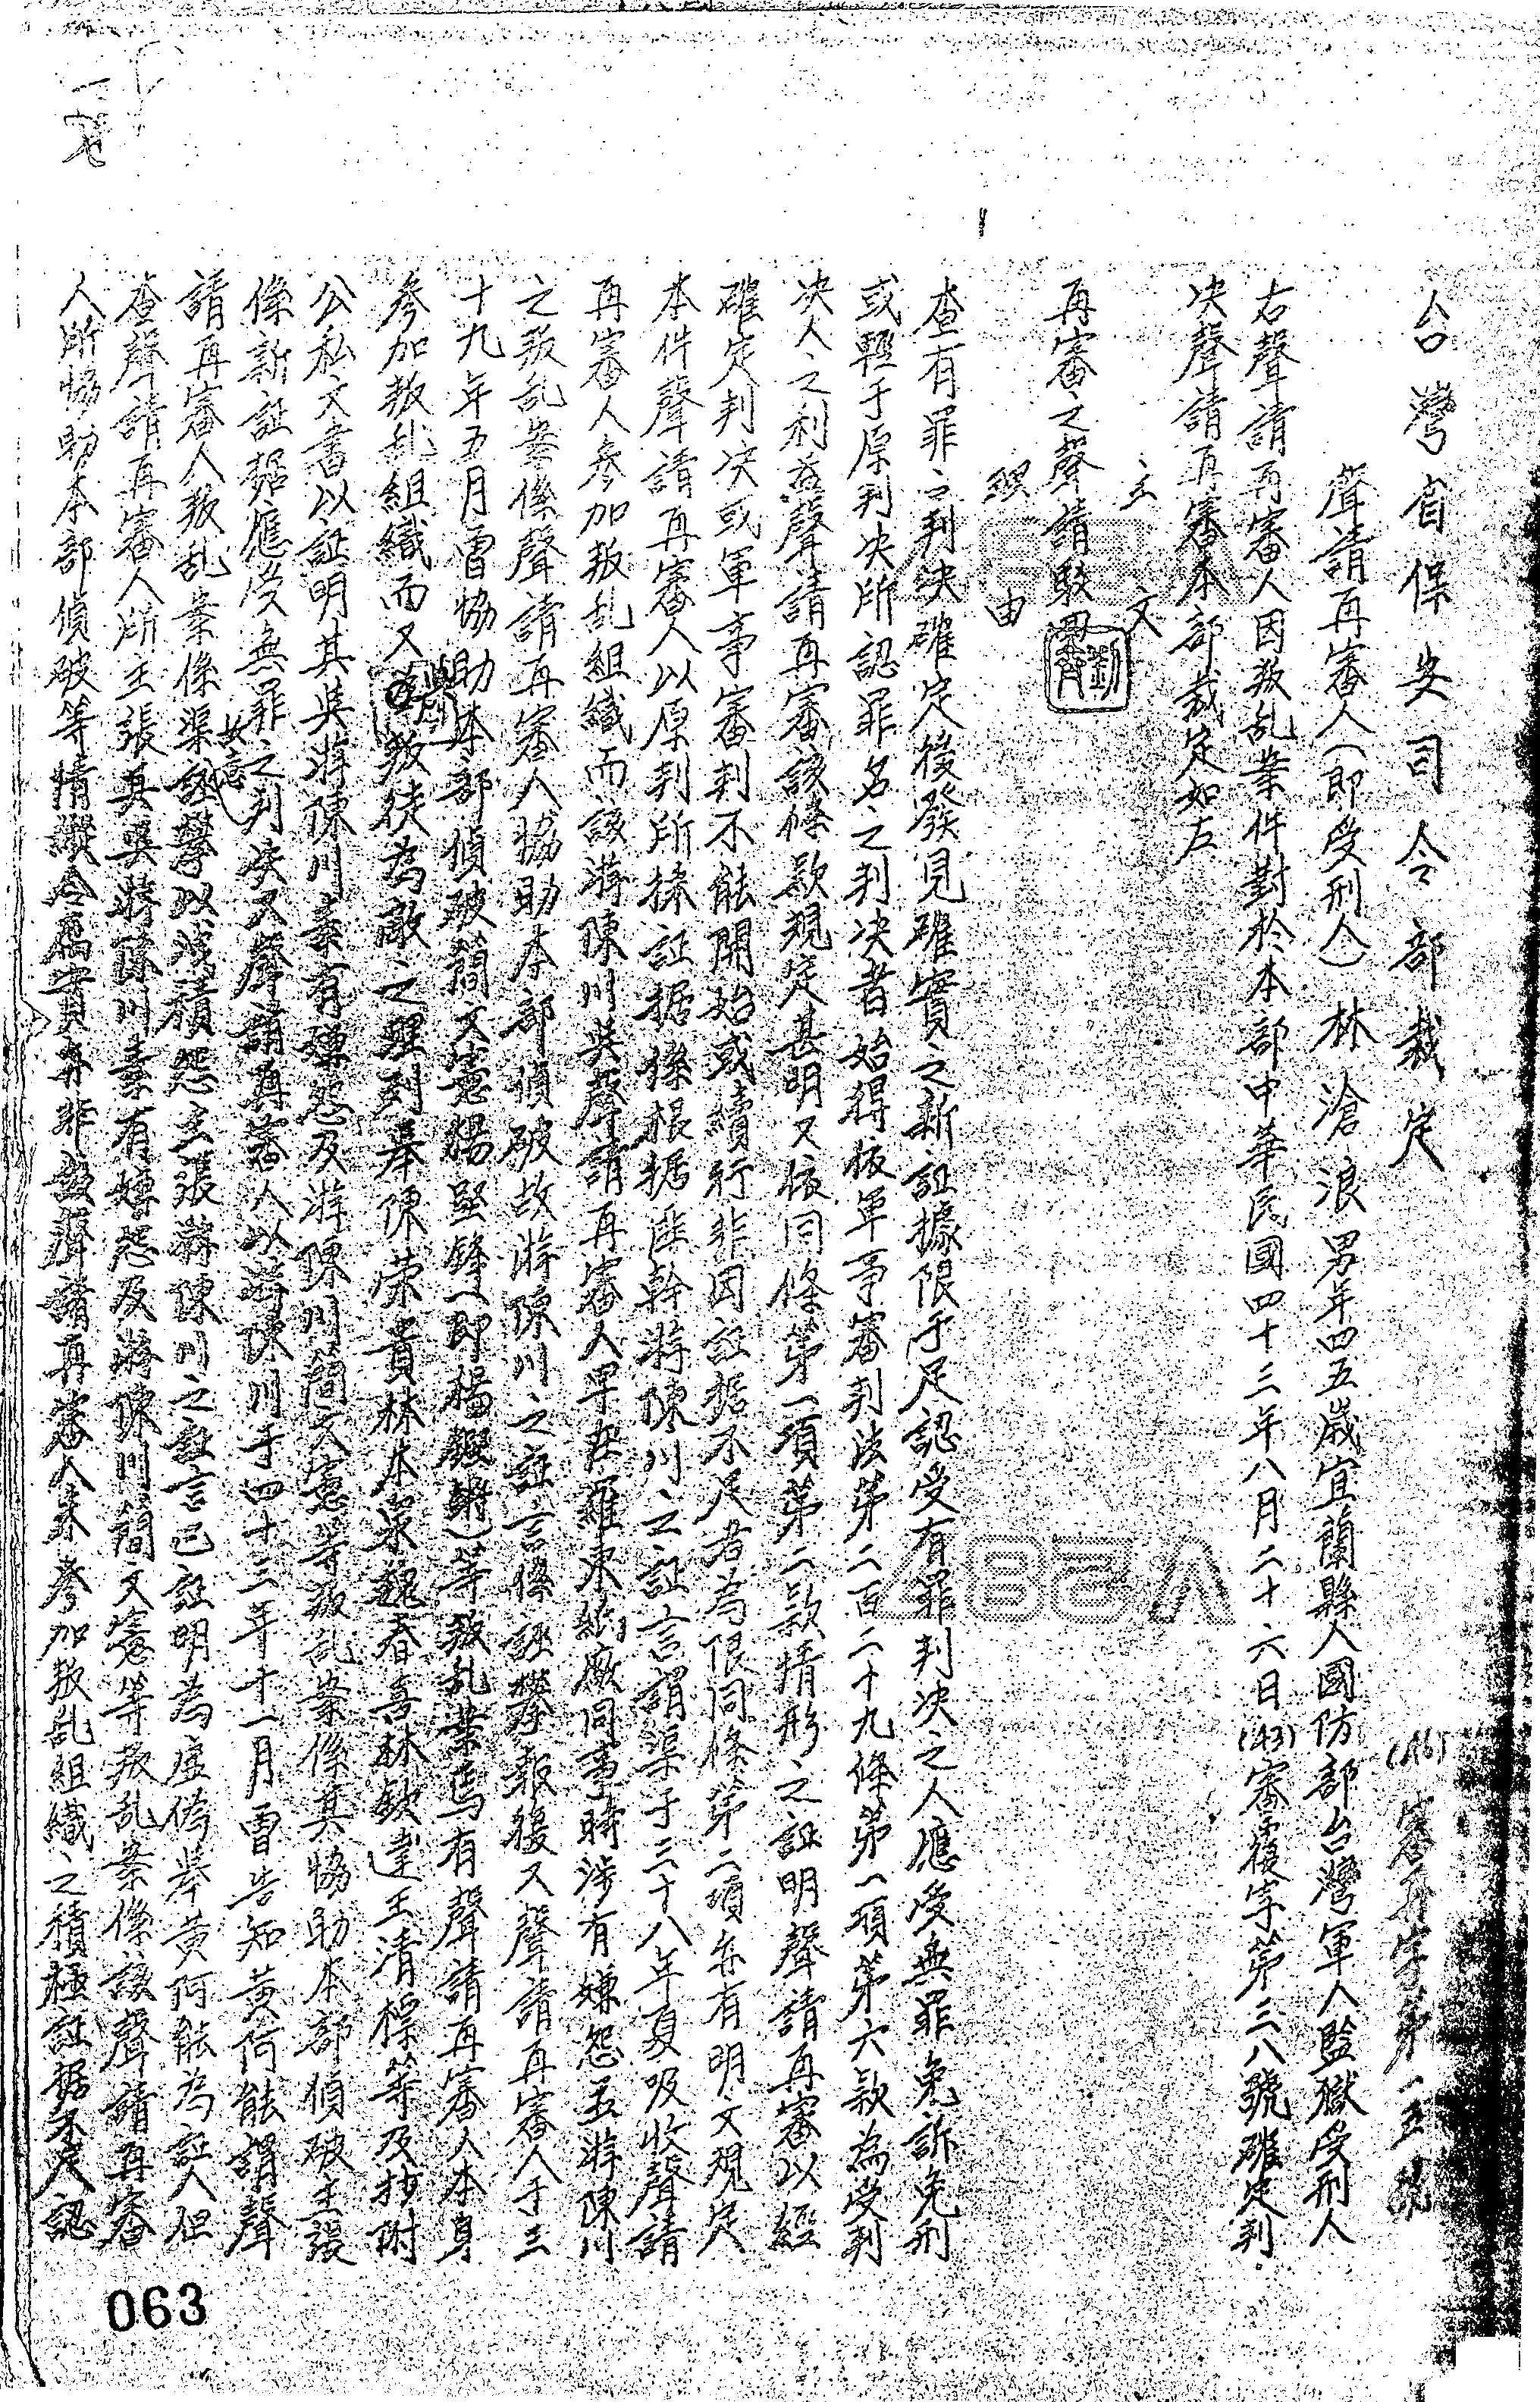 台灣省保安司令部裁定
審再字第
聲請再審人(即受刑人)林滄浪男年四五歲宜蘭縣人國防部台灣軍人監獄受刑人
右聲請再審人因叛乱案件對於本部中華民國四十三年八月二十六日(43)審覆字第三八號確定判
决聲請再審本部裁定如左
主文
再審之聲請駁回
理由
查有罪之判决確定後發見確實之新証據限于足認受有罪判决之人應受無罪免訴免刑
或輕于原判决所認罪名之判决者始得按軍事審判法第二百二十九條第一項第六款為受判
决人之利益聲請再審該條款規定甚明又依同條第一項第二款情形之証明聲請再審以經
確定判决或軍事審判不能開始或續行非因証据不足者為限同條第二項亦有明文規定
本件聲請再審人以原判所採証据係根据匪幹游陳川之証言謂渠于三十八年夏吸收聲請
再審人參加叛乱組織而該游陳川與聲請再審人早在羅東紙廠同事時涉有嫌怨且游陳川
之叛乱案係聲請再審人協助本部偵破故游陳川之証言係誣攀報復又聲請再審人于三
十九年五月曾協助本部偵破簡文憲楊堅鋒(即楊)等叛乱案焉有聲請再審人本身
參加叛乱組織而又叛徒為敵之理列舉陳荣貴林本泉魏春喜林欽達王清標等及抄附
公私文書以証明其與游陳川素有嫌怨及游陳川簡文憲等叛乱案係其協助本部偵破主張
係新証据應受無罪之判决又聲請再審人以游陳川于四十三年十一月曾告知黃阿能謂聲
請再審人叛乱案係渠誣攀以洩積怨主張游陳川之証言已証明為虛偽舉黃阿能為証人但
查聲請再審人所主張其與游陳川素有嫌怨及游陳川簡文憲等叛乱案係該聲請再審
人所協助本部偵破等情縱令屬實亦非聲請再審人未參加叛乱組織之積極証据不足認
063